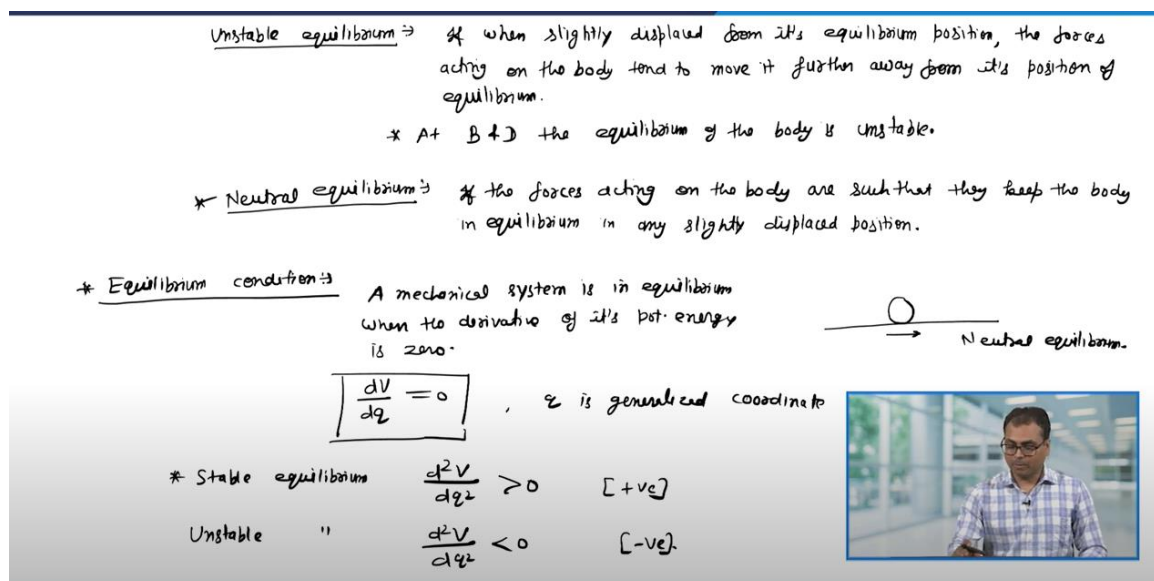 Unstable equilibrium ⇒ If when slightly displaced from it's equilibrium position, the forces
acting on the body tend to move it further away from it's position of
equilibrium.
* At B & D the equilibrium of the body is unstable.
* Neutral equilibrium ⇒ If the forces acting on the body are such that they keep the body
in equilibrium in any slightly displaced position.
* Equilibrium condition ⇒ A mechanical system is in equilibrium
when the derivative of it's pot. energy
is zero.
Neutral equilibrium.
dV/dq = 0 , q is generalized coordinate
* Stable equilibrium d²V/dq² > 0 [+ve]
Unstable " d²V/dq² < 0 [-ve].